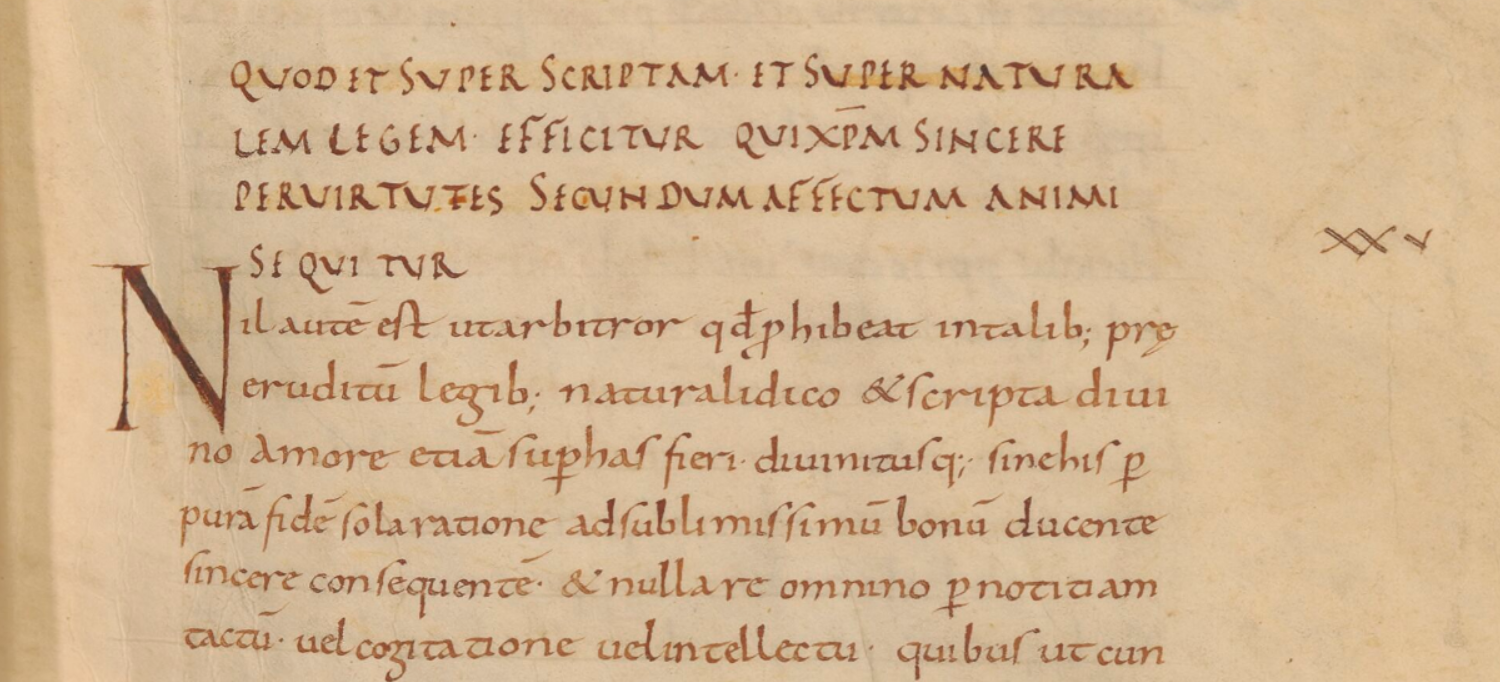 QUOD ET SUPER SCRIPTAM· ET SUPER NATURA
LEM LEGEM· EFFICITUR QUI XP̄M SINCERE
PER UIRTUTES SECUNDUM AFFECTUM ANIMI
SEQUITUR
XXV
Nil autē est ut arbitror qđ ꝓhibeat in talib; prę
eruditū legib; naturali dico & scripta diui
no amore etiā suꝑ has fieri· diuinitusq;· sine his ꝑ
purā fidē sola ratione ad sublimissimū bonū ducente
sincere consequentē· & nulla re omnino ꝑ notitiam
tactū· uel cogitatione uel intellectu· quibus utcun